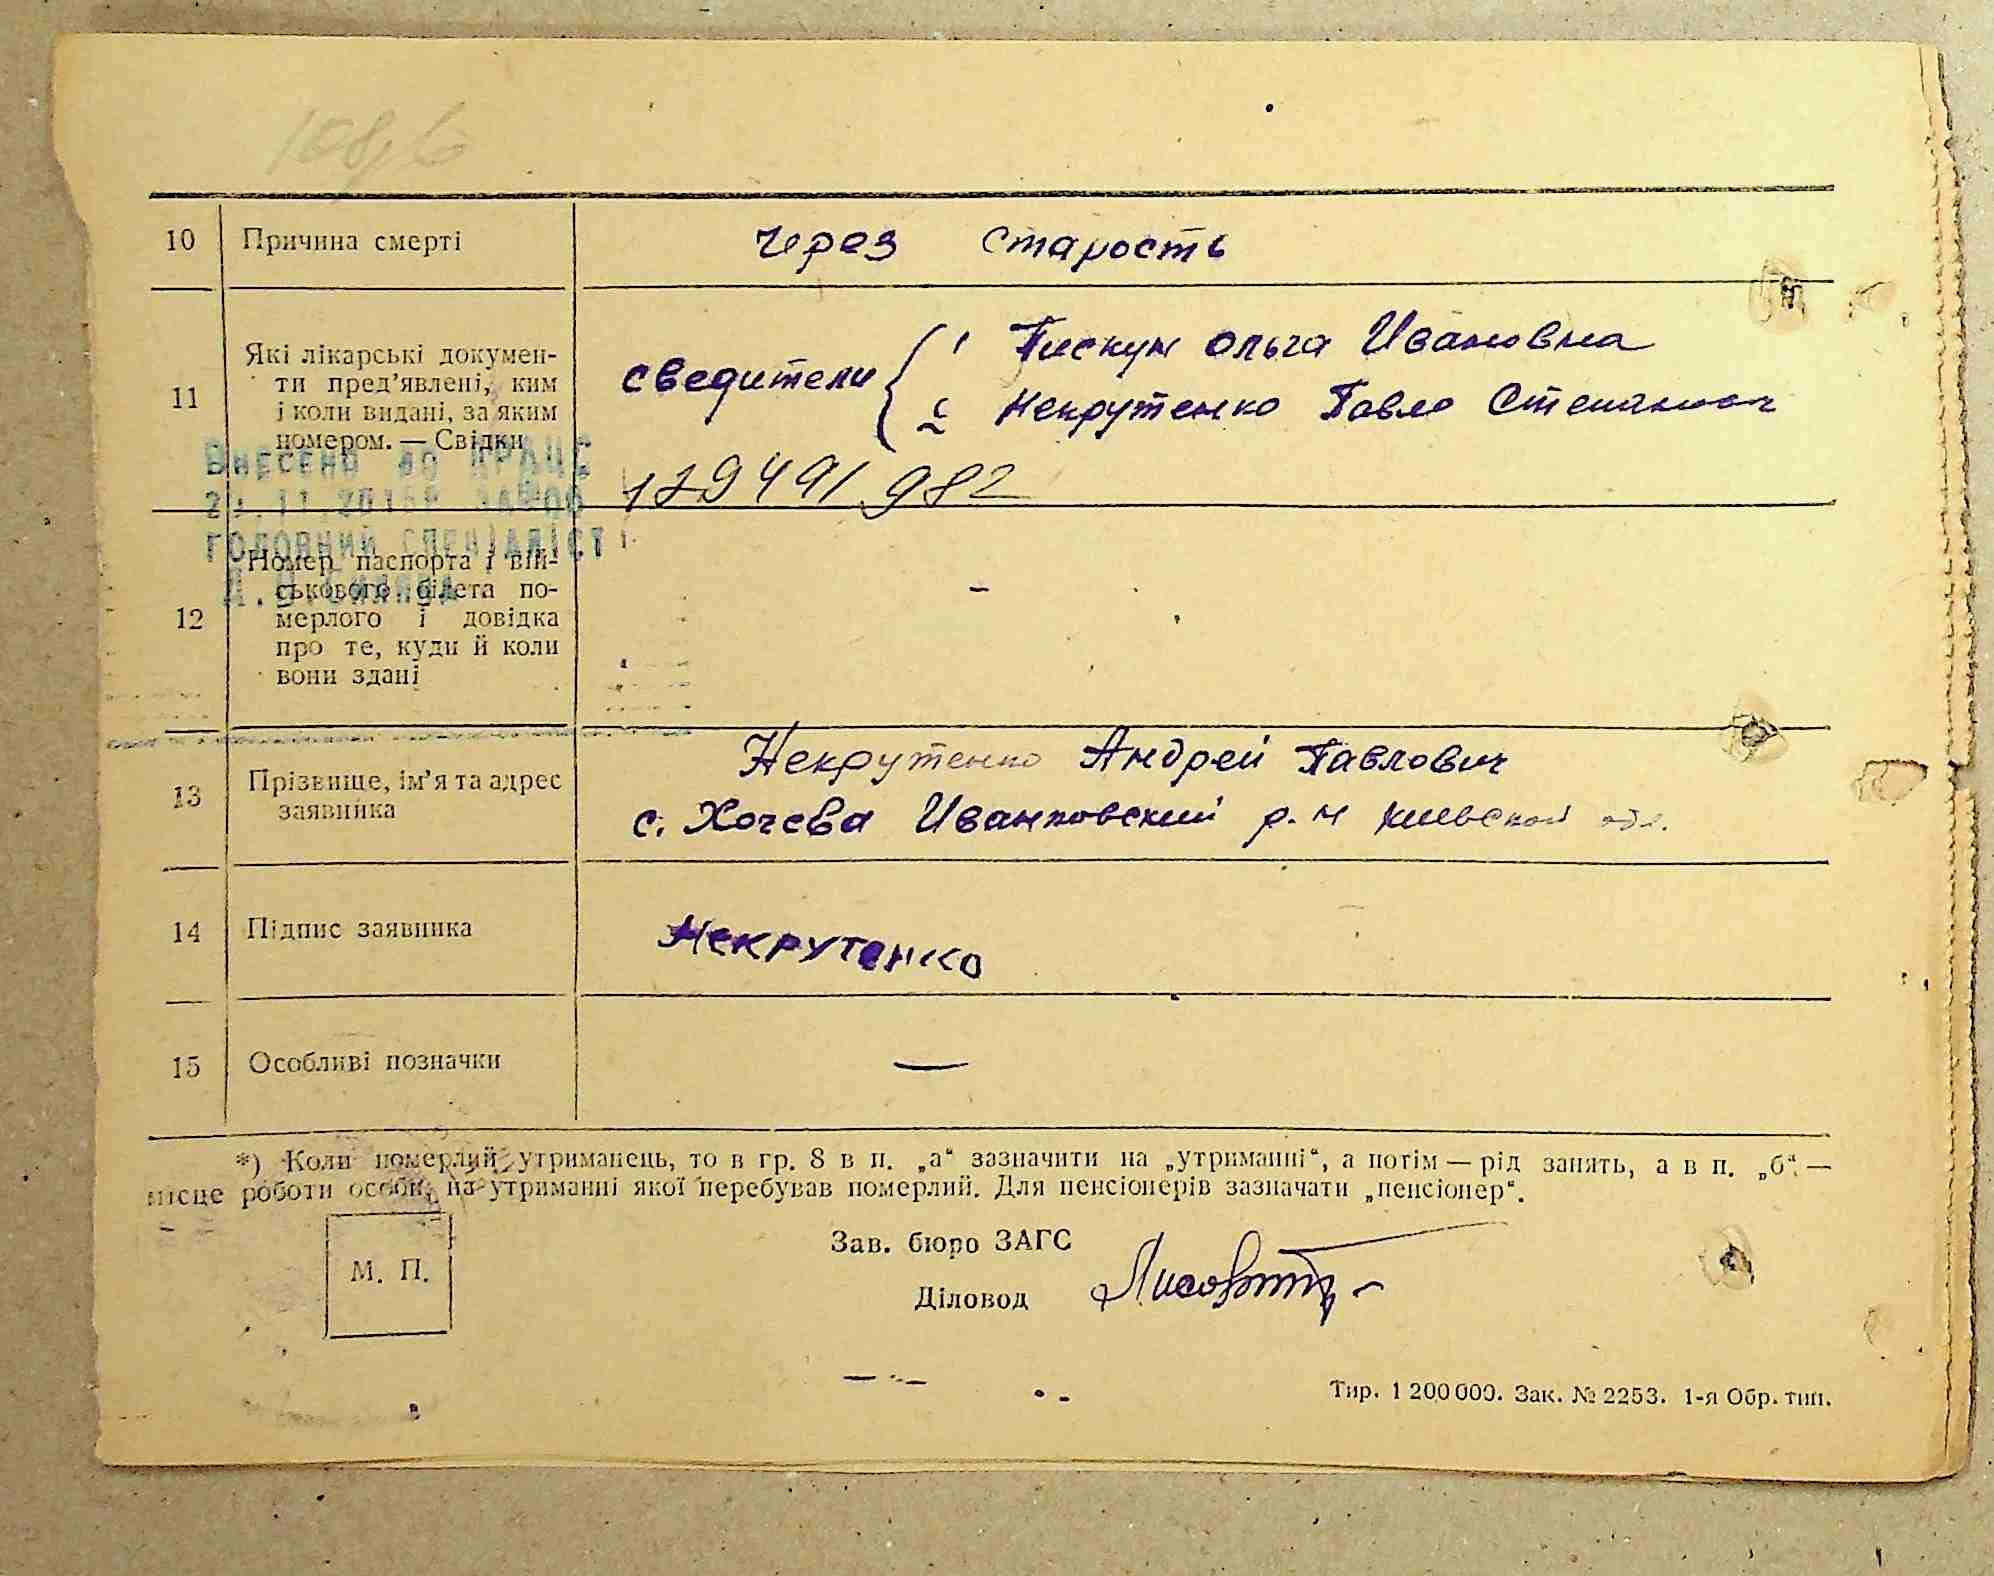 108б
10 Причина смерті через старость
11 Які лікарські докумен-
ти пред'явлені, ким
і коли видані, за яким
номером. — Свідки
сведители { 1 Пискун Ольга Ивановна
2 Некрутенко Павло Степанович
17949/982
Внесено до
головний спеціаліст
12 Номер паспорта і вій-
ськового білета по-
мерлого і довідка
про те, куди й коли
вони здані
-
13 Прізвище, ім'я та адрес
заявника
Некрутенко Андрей Павлович
с. Хочева Иванковский р.н Киевской обл.
14 Підпис заявника Некрутенко
15 Особливі позначки —
*) Коли померлий утриманець, то в гр. 8 в п. „а“ зазначити на „утриманні“, а потім — рід занять, а в п. „б“ —
місце роботи особи, на утриманні якої перебував померлий. Для пенсіонерів зазначати „пенсіонер“.
М. П.
Зав. бюро ЗАГС
Діловод
Тир. 1 200 000. Зак. № 2253. 1-я Обр. тип.